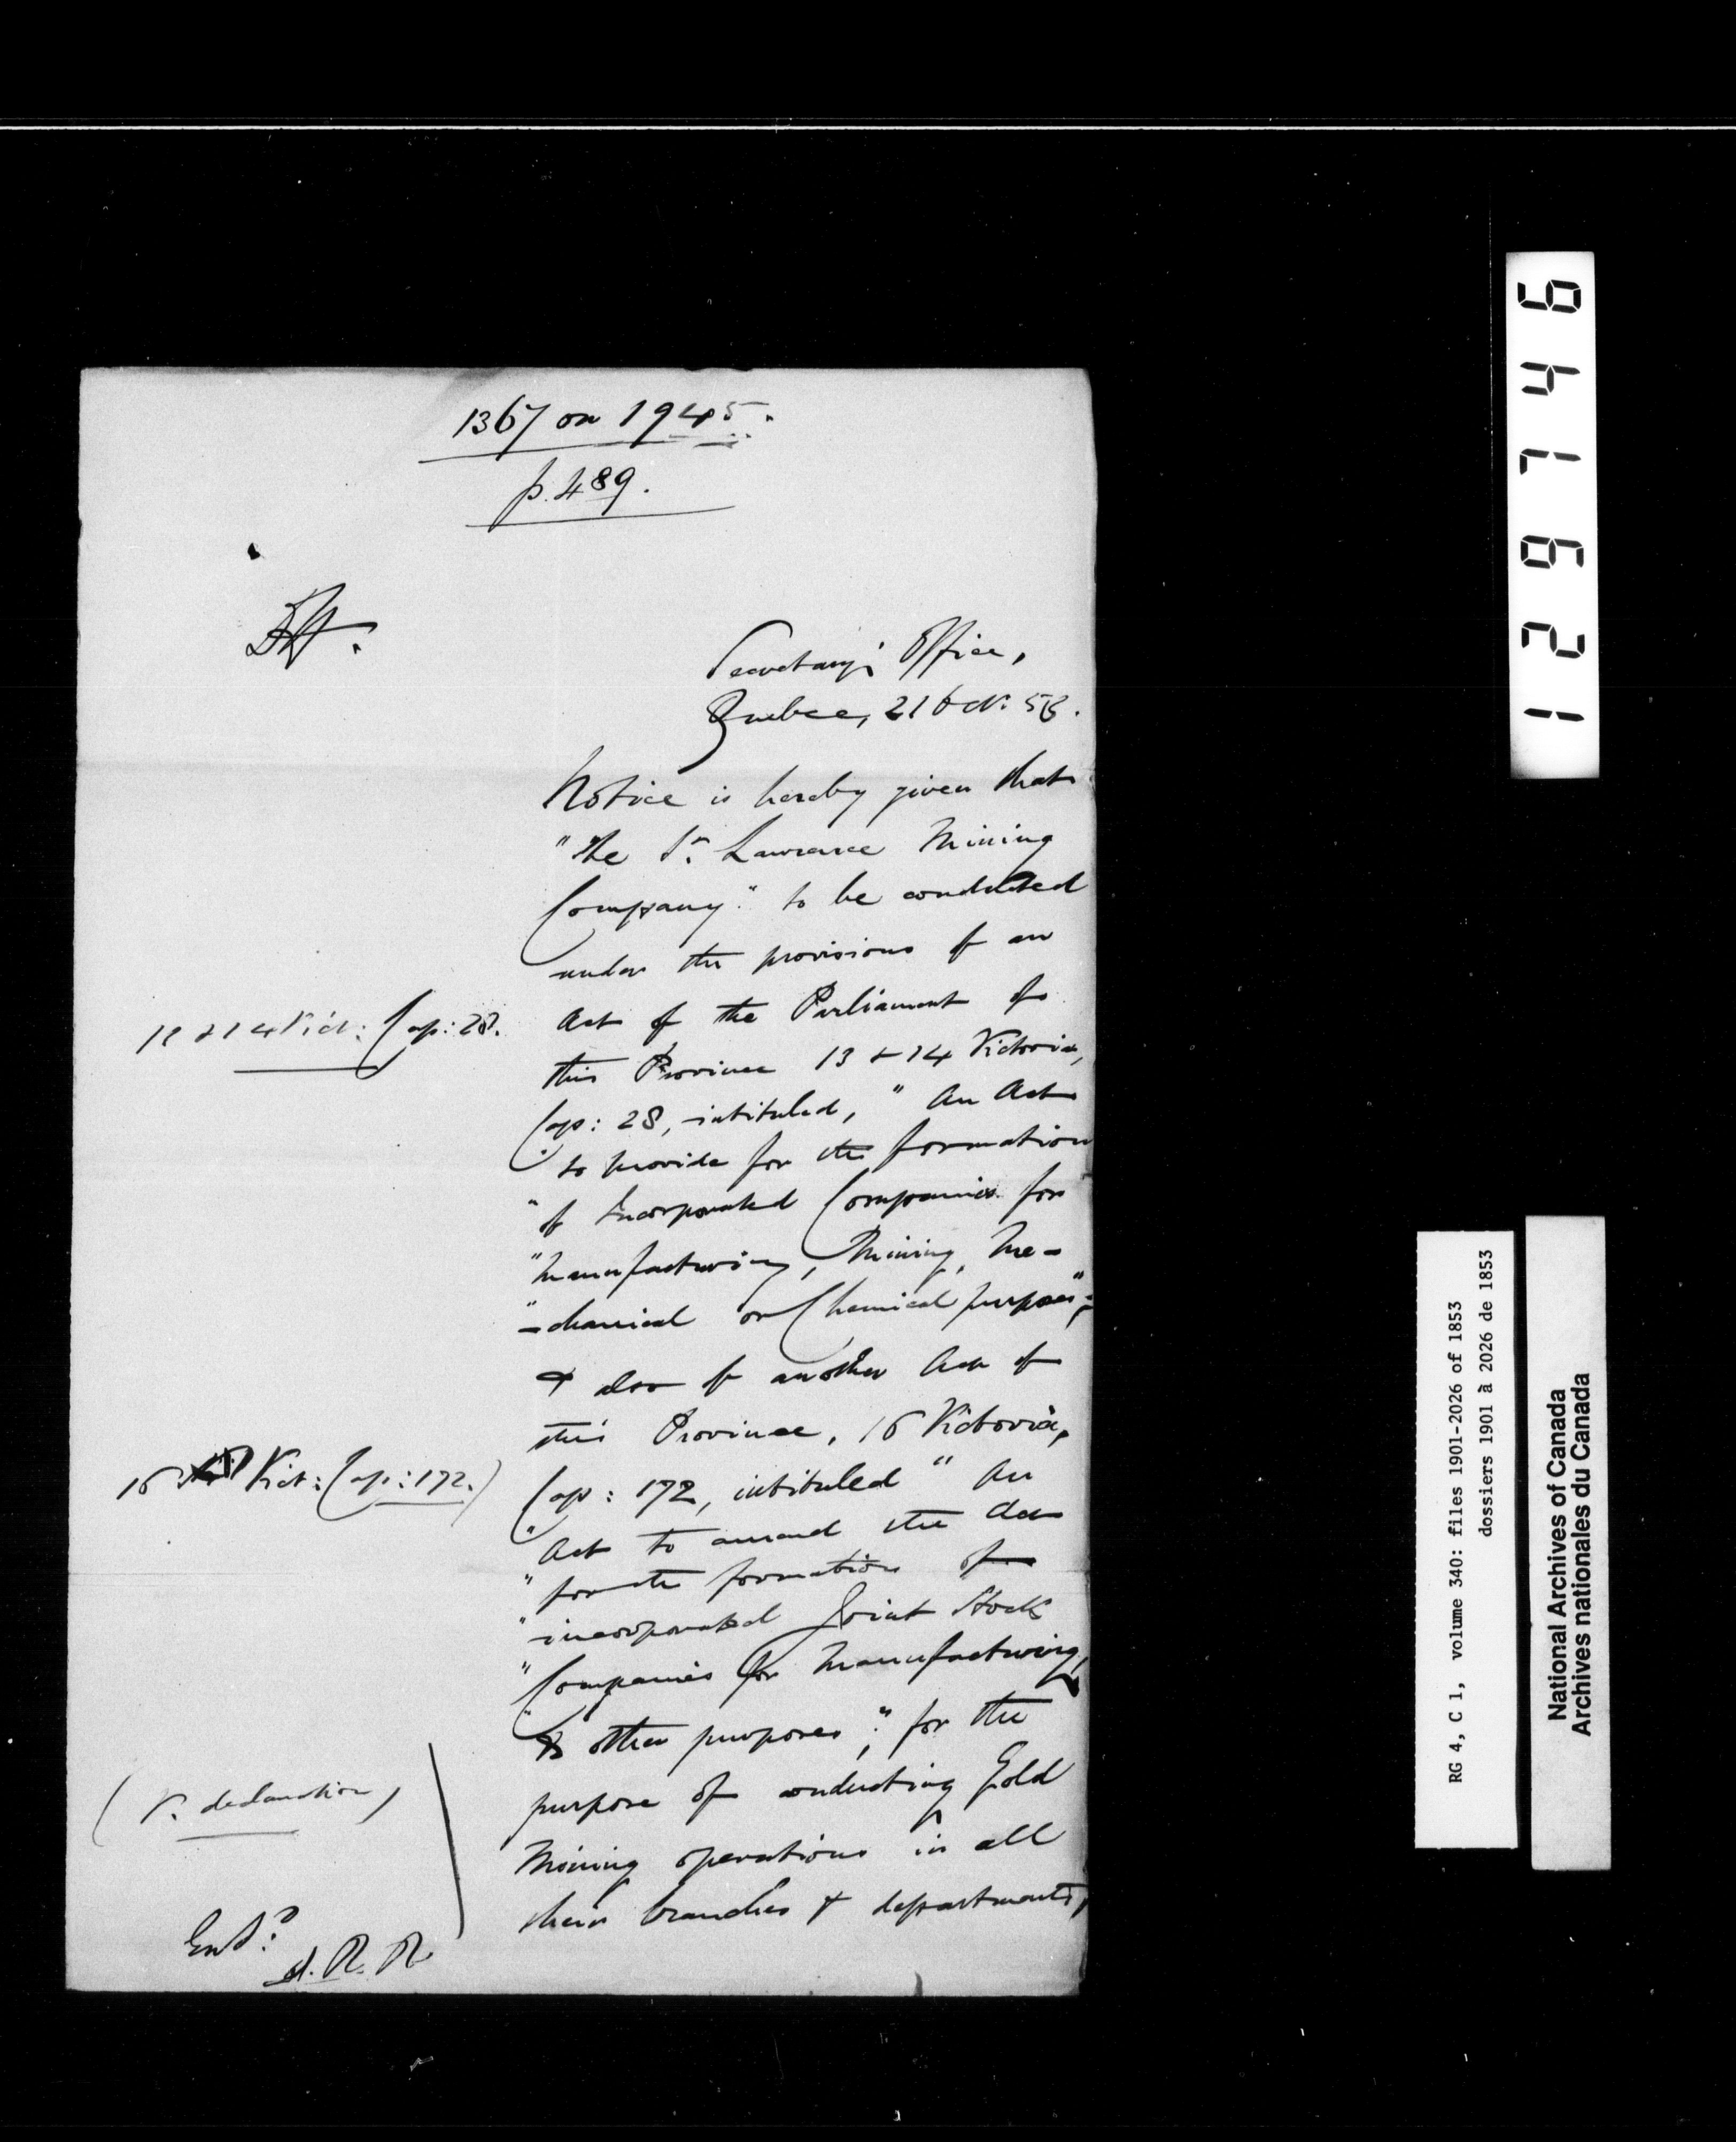 1367 on 1945.
p. 489.
Dft.
Secretary's Office,
Quebec, 21 Oct: 53.
Notice is hereby given that
"The St. Lawrence Mining
Company" to be conducted
under the provisions of an
13 & 14 Vict: Cap: 28.
Act of the Parliament of
this Province 13 & 14 Victoria,
Cap: 28, intituled, "An Act
"to provide for the formation
"of Incorporated Companies for
"Manufacturing, Mining, Me-
"-chanical or Chemical purposes";
& also of another Act of
this Province, 16 Victoria,
16 Vict: Cap: 172.)
Cap: 172, intituled "An
"Act to amend the Act
"for the formation of
"incorporated Joint Stock
"Companies for Manufacturing,
"& other purposes"; for the
purpose of conducting Gold
(V. declaration)
Mining operations in all
their branches & departments,
Entd.
A. R. R.
129746
RG 4, C 1, volume 340: files 1901-2026 of 1853
dossiers 1901 à 2026 de 1853
National Archives of Canada
Archives nationales du Canada